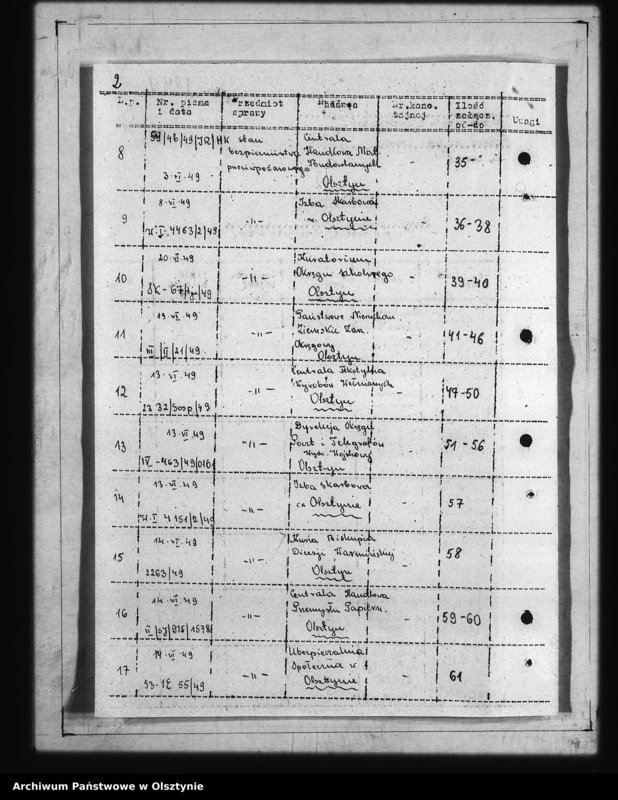 2
L.p. Nr. pisma i data Przedmiot sprawy Nadawca Nr.kanc. tajnej Ilość załącz. od-do Uwagi
8 59/46/49/JR/HK stan Centrala
bezpieczeństwa Handlowa Mat.
przeciwpożarowego Budowlanych 35-
3.VI.49 Olsztyn
8.VI.49 Izba Skarbowa
9 -"- w Olsztynie - 36-38
I. 4463/2/49
20.VI.49 Kuratorium
10 -"- Okręgu Szkolnego - 39-40
SK-67/ /49 Olsztyn
19.VI.49 Państwowe Nieruchom.
11 -"- Ziemskie Zarz. - 41-46
III/II/21/49 Okręgowy
Olsztyn
13.VI.49 Centrala Tekstylna
12 -"- Wyrobów Wełnianych - 47-50
32/Gosp/49 Olsztyn
13.VI.49 Dyrekcja Okręgu
13 -"- Poczt i Telegrafów - 51-56
IV-463/49/0161 Wydz. Wojskowy
Olsztyn
13.VI.49 Izba Skarbowa
14 -"- w Olsztynie - 57
I 4151/2/49
14.VI.49 Kuria Biskupia
15 -"- Diecezji Warmińskiej - 58
2263/49 Olsztyn
14.VI.49 Centrala Handlowa
16 -"- Przemysłu Papiern. - 59-60
II/ /978/1578 Olsztyn
14.VI.49 Ubezpieczalnia
17 -"- Społeczna w - 61
53-1E 55/49 Olsztynie
Archiwum Państwowe w Olsztynie